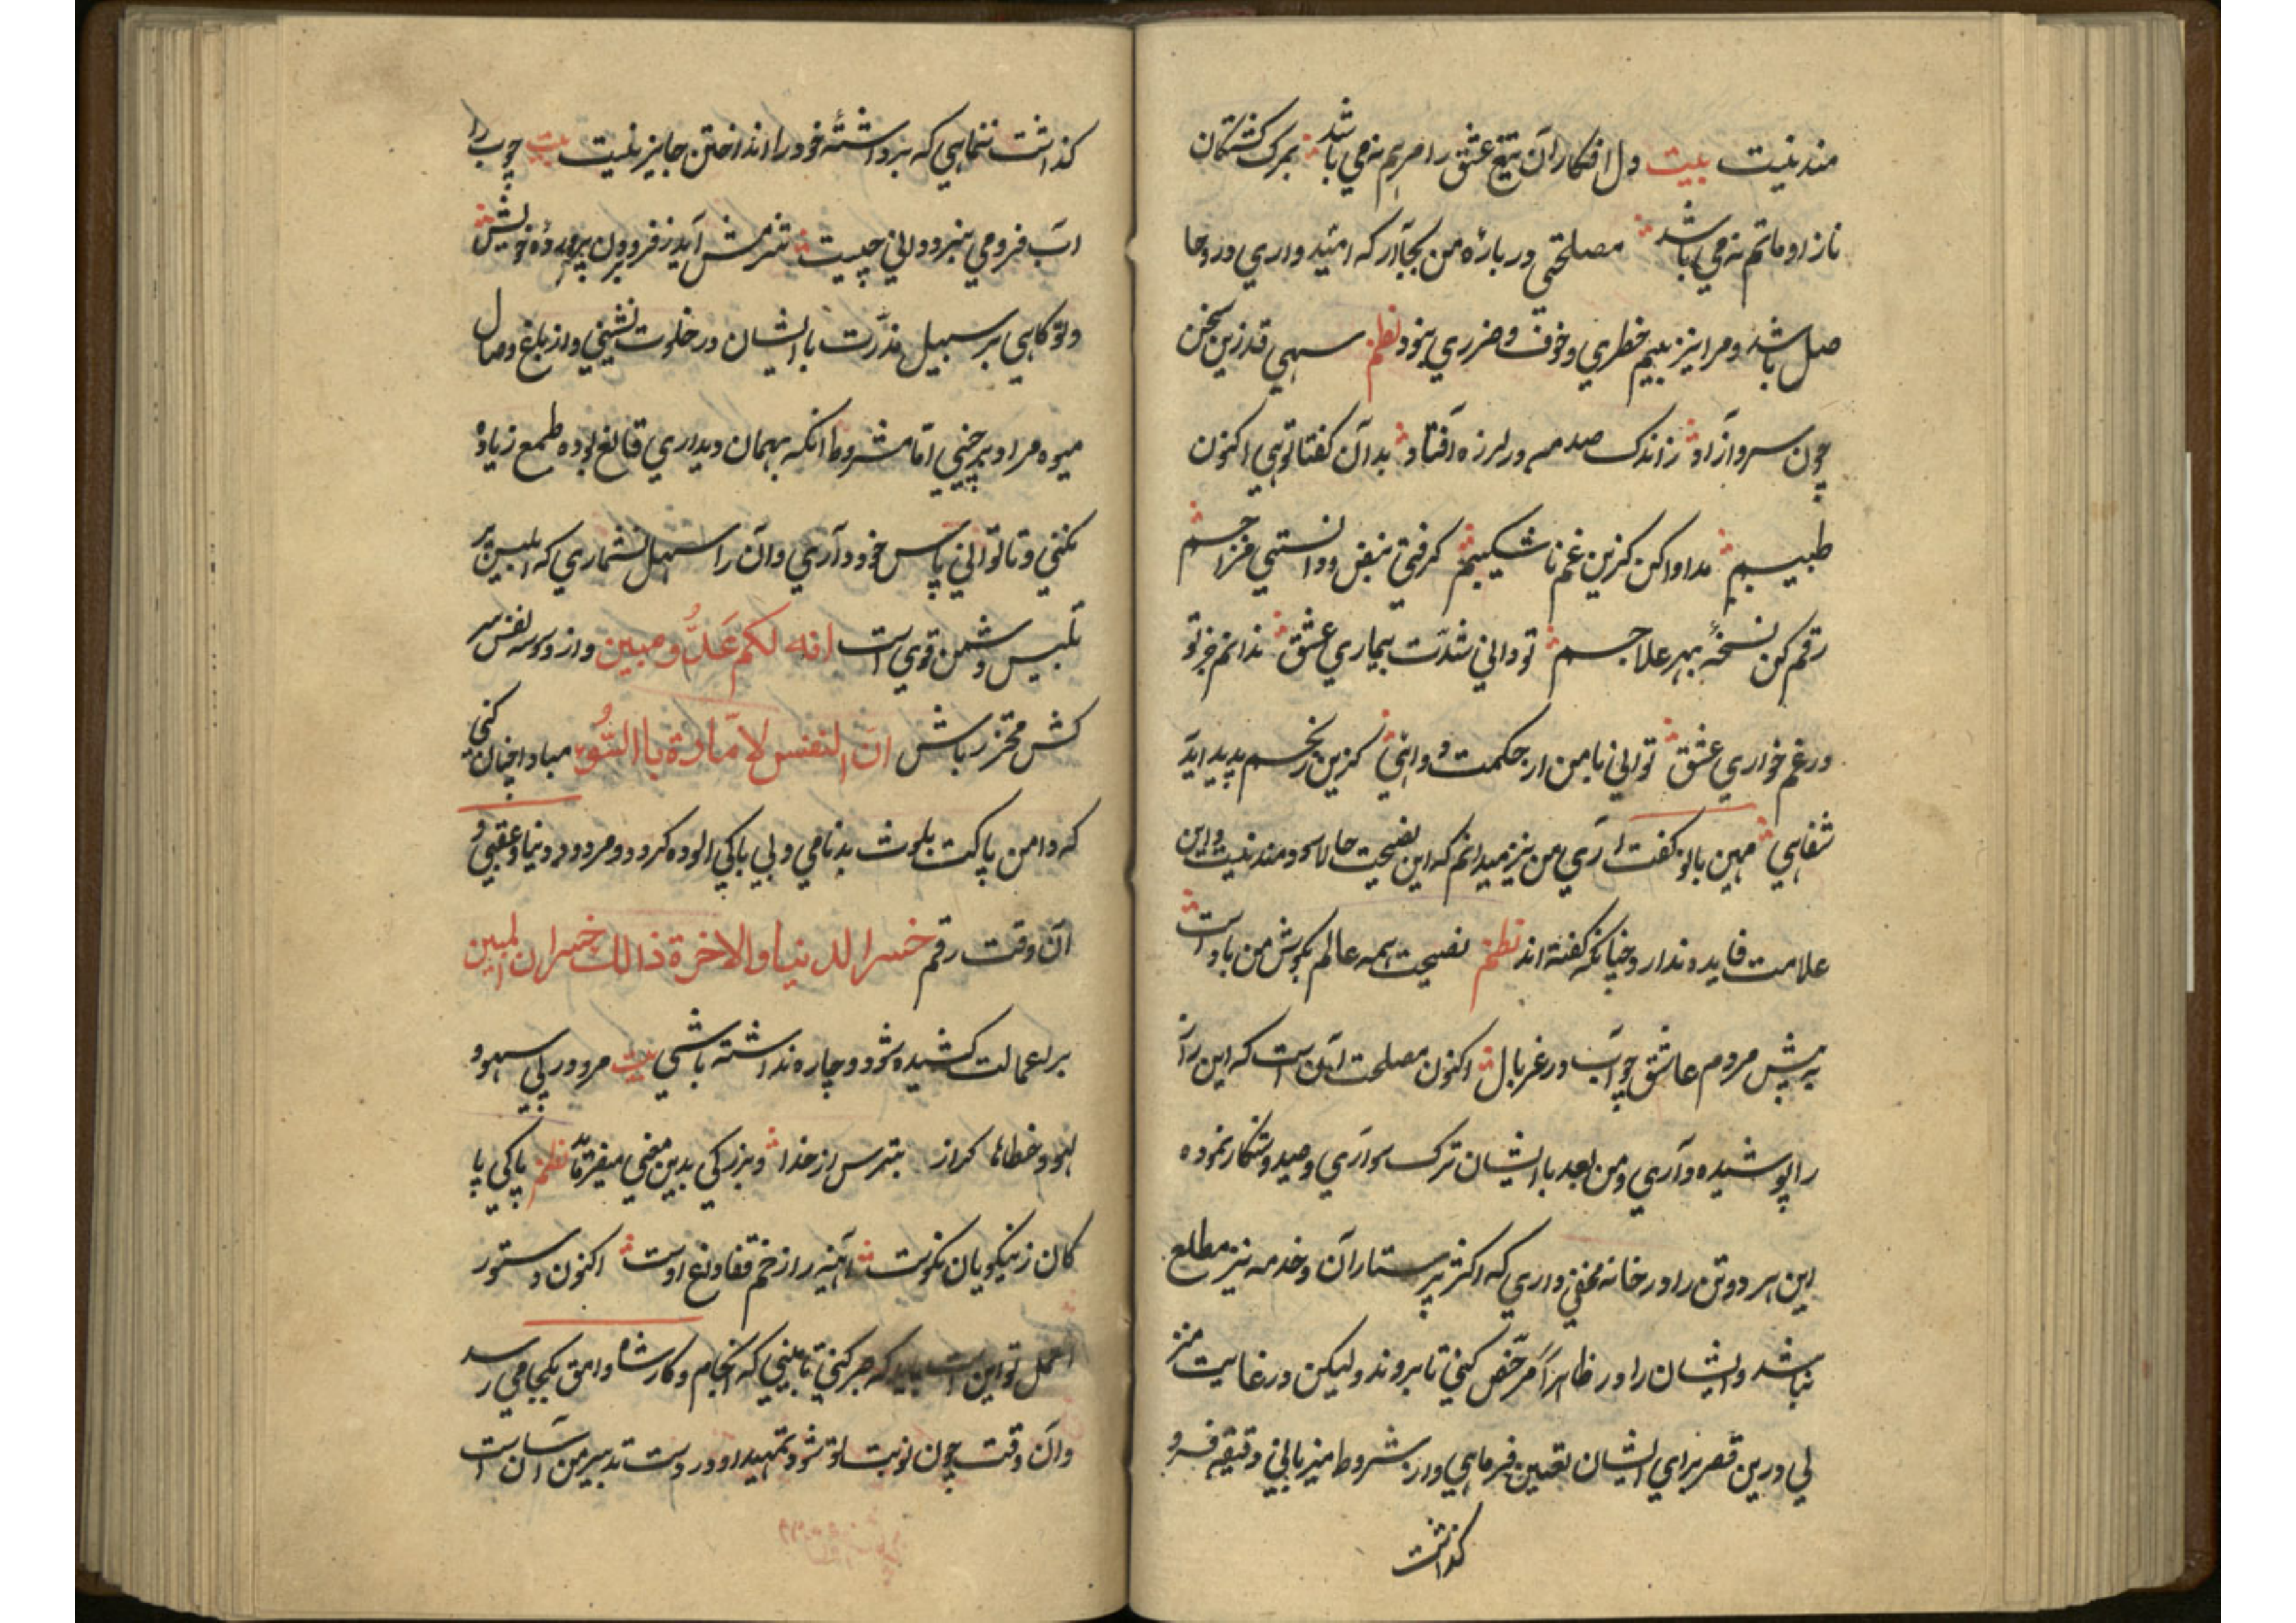 مند نیست بیت دل افکاران تیغ عشق را مرهم نه می باشد بمرک کشتکان
ناز او ماتم نه می باشد مصلحتی در باره من بجا آر که امید واری دروحا
صل باشد و مرا نیز بیم خطری و خوف و ضرری نبود نظم سهی قد زین سخن
چون سرو آزاد ز اندک صدمه در لرزه افتاد بدان کفتا توهی اکنون
طبیبم مداوا کن کزین غم ناشکیبم کرفتی نبض و دانستی مزاجم
رقم کن نسخهٔ بهر علاجم تو دانی شدت بیماری عشق ندانم جز تو
در غم خواری عشق توانی با من ار حکمت و دانی کزین رنجم پدید اید
شفاهی مهین بانو کفت اری من نیز میدانم که این نصیحت حالا سودمند نیست و این
علامت فایده ندارد چنانکه کفته اند نظم نصیحت همه عالم بکوش من باد است
به پیش مردم عاشق چو آب در غربال اکنون مصلحت آن است که این راز
را پوشیده داری و من بعد با ایشان ترک سواری و صید و شکار نموده
این هر دو تن را در خانه مخفی داری که اکثر پرستاران و خدمه نیز مطلع
نباشد و ایشان را در ظاهرا مرخص کنی تا بروند و لیکن در غایت منز
لی درین قصر برای ایشان تعین فرماهی و از شروط میزبانی دقیقه فرو
کذاشت
کذاشت ننماهی که برداشتهٔ خود را انداختن جایز نیست بیت چوب را
اب فرو می نبرد دانی چیست شرمش آید ز فرو بردن پرورده خویش
و تو کاهی بر سبیل ندرت با ایشان در خلوت نشینی و از باغ وصال
میوه مراد بر چینی اما مشروط انکه بهمان دیداری قانع بوده طمع زیاده
نکنی و تا توانی پاس خود داری و آن را سهل نشماری که ابلیس پر
تلبیس دشمن قوی است انه لکم عدو مبین و از وسوسه نفس سر
کش محترز باش ان النفس لامارة باالسوء مبادا چنان کنی
که دامن پاکت بلوث بدنامی و بی باکی الوده کردد و مردود دنیا و عقبی و
آن وقت رقم خسر الدنیا والاخرة ذالك خسران المبین
بر اعمالت کشیده شود و چاره نداشته باشی بیت مرو در پی سهو و
لهو و خطاها کراز بترس از خدا و بزرکی بدین معنی نظم پاکی پا
کان ز نیکویان نکوست آینه را زخم قفا داغ اوست اکنون دستور
العمل تو این است باید که صبر کنی تا ببینی که انجام و کار شاه وامق بکجا می رسد
و آن وقت چون نوبت بتو شود تمهید او در دست تدبیر من آسان است